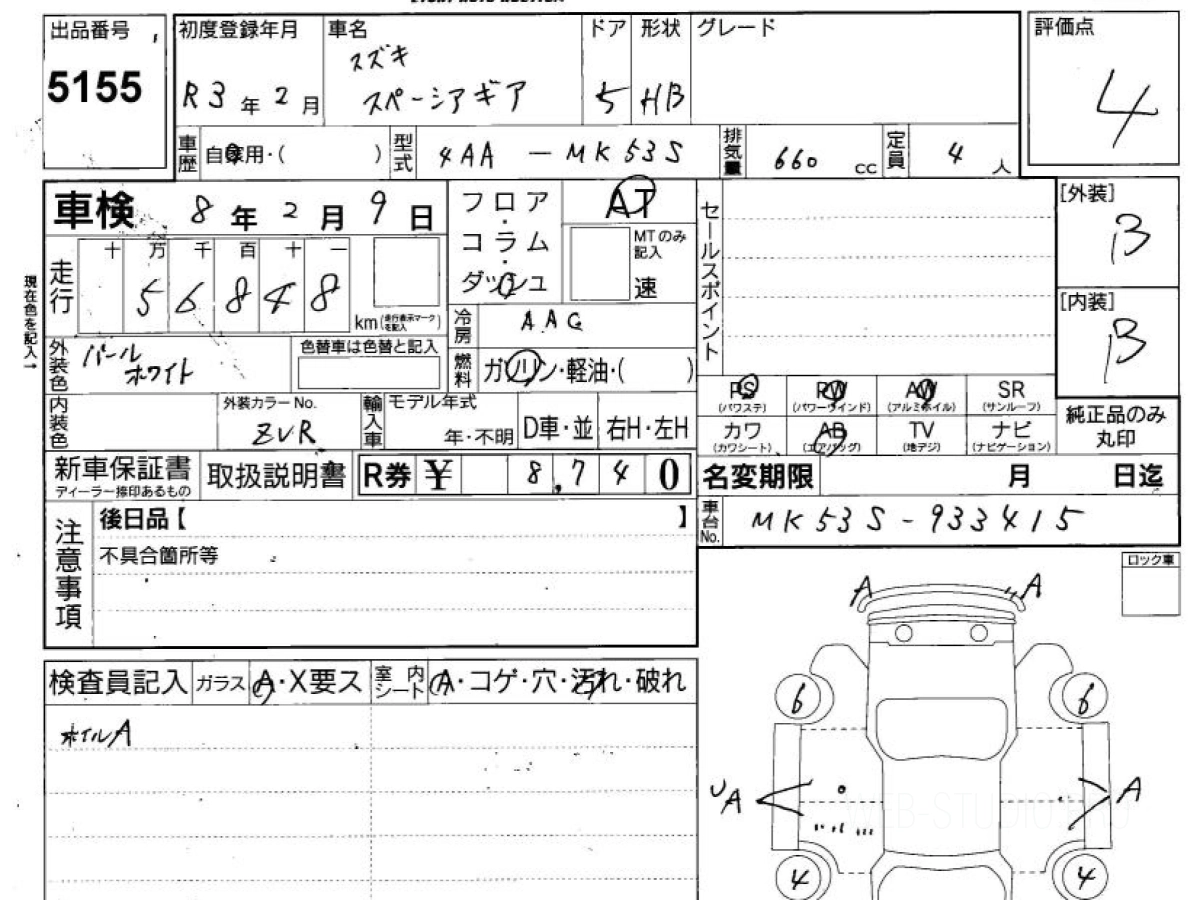 出品番号
5155
初度登録年月
R3年2月
車名
スズキ
スペーシアギア
ドア
5
形状
HB
グレード
評価点
4
車歴
自家用・( )
型式
4AA-MK53S
排気量
660 cc
定員
4人
車検 8年2月9日
フロア・コラム・ダッシュ
AT
MTのみ記入
速
セールスポイント
[外装]
B
[内装]
B
現在色を記入→
走行
十万千百十一
56848
km(走行表示マークを記入)
冷房
AAC
燃料
ガソリン・軽油・( )
外装色
パール
ホワイト
色替車は色替と記入
内装色
外装カラーNo.
ZVR
輸入車
モデル年式
年・不明
D車・並
右H・左H
PS (パワステ)
PW (パワーウインド)
AW (アルミホイル)
SR (サンルーフ)
カワ (カワシート)
AB (エアバッグ)
TV (地デジ)
ナビ (ナビゲーション)
純正品のみ
丸印
新車保証書
ディーラー捺印あるもの
取扱説明書
R券 ¥ 8,740
名変期限 月 日迄
車台No.
MK53S-933415
注意事項
後日品【 】
不具合箇所等
ロック車
検査員記入
ガラス
A・X要ス
室内シート
A・コゲ・穴・汚れ・破れ
ホイルA
A
A
6
6
UA
A
4
4
WEB-STUDIO.PRO